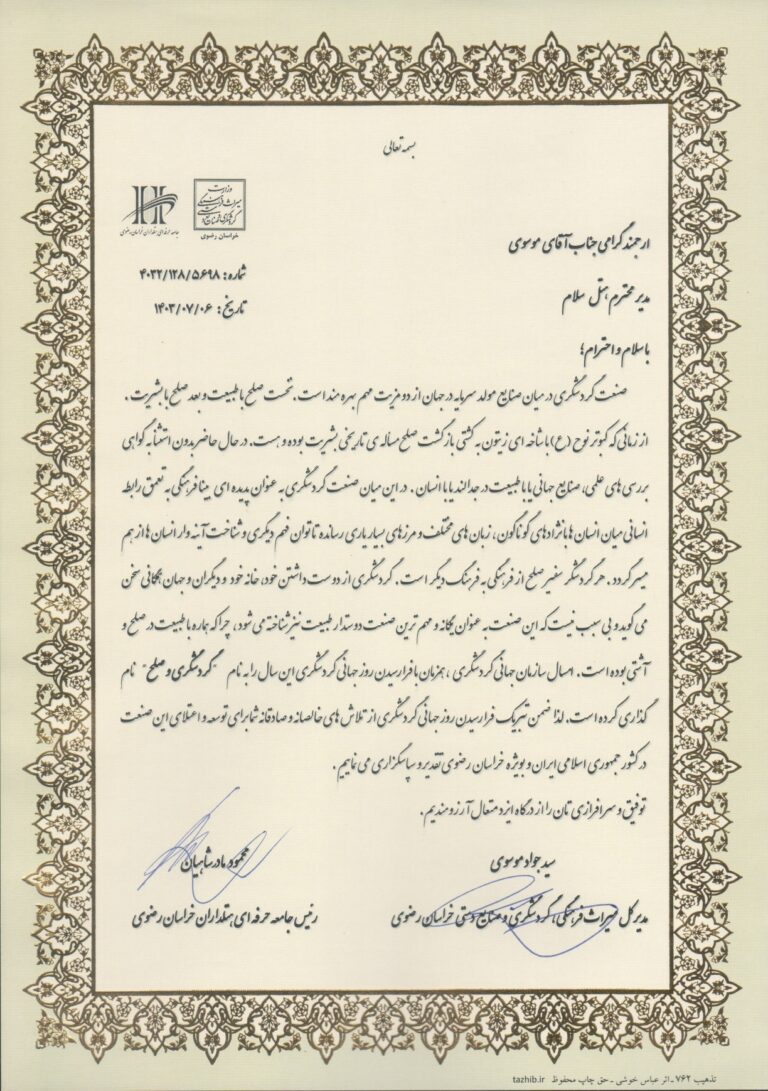 بسمه تعالی
وزارت
میراث فرهنگی
گردشگری و صنایع دستی
خراسان رضوی
جامعه حرفه ای هتلداران خراسان رضوی
ارجمند گرامی جناب آقای موسوی
شماره: ۴۰۳۲/۱۲۸/۵۶۹۸
مدیر محترم هتل سلام
تاریخ: ۱۴۰۳/۰۷/۰۶
با سلام و احترام؛
صنعت گردشگری در میان صنایع مولد سرمایه در جهان از دو مزیت مهم بهره مند است. نخست صلح با طبیعت و بعد صلح با بشریت.
از زمانی که کبوتر نوح (ع) با شاخه ای زیتون به کشتی بازگشت صلح مسأله ی تاریخی بشریت بوده و هست. در حال حاضر بدون استثنا به گواهی
بررسی های علمی، صنایع جهانی یا با طبیعت در جدالند یا با انسان. در این میان صنعت گردشگری به عنوان پدیده ای بینافرهنگی به تعمق رابطه
انسانی میان انسان ها با نژادهای گوناگون، زبان های مختلف و مرزهای بسیار یاری رسانده تا توان فهم دیگری و شناخت آینه وار انسان ها از هم
میسر گردد. هر گردشگر سفیر صلح از فرهنگی به فرهنگ دیگر است. گردشگری از دوست داشتن خود، خانه خود و دیگران و جهان همگانی سخن
می گوید و بی سبب نیست که این صنعت به عنوان یگانه و مهم ترین صنعت دوستدار طبیعت نیز شناخته می شود، چرا که هماره با طبیعت در صلح و
آشتی بوده است. امسال سازمان جهانی گردشگری، همزمان با فرارسیدن روز جهانی گردشگری این سال را به نام "گردشگری و صلح" نام
گذاری کرده است. لذا ضمن تبریک فرارسیدن روز جهانی گردشگری از تلاش های خالصانه و صادقانه شما برای توسعه و اعتلای این صنعت
در کشور جمهوری اسلامی ایران و بویژه خراسان رضوی تقدیر و سپاسگزاری می نماییم.
توفیق و سرافرازی تان را از درگاه ایزد متعال آرزومندیم.
سید جواد موسوی
محمود مادرشاهیان
مدیرکل میراث فرهنگی، گردشگری و صنایع دستی خراسان رضوی
رئیس جامعه حرفه ای هتلداران خراسان رضوی
تذهیب ۷۶۲ ـ اثر عباس خوشی ـ حق چاپ محفوظ tazhib.ir